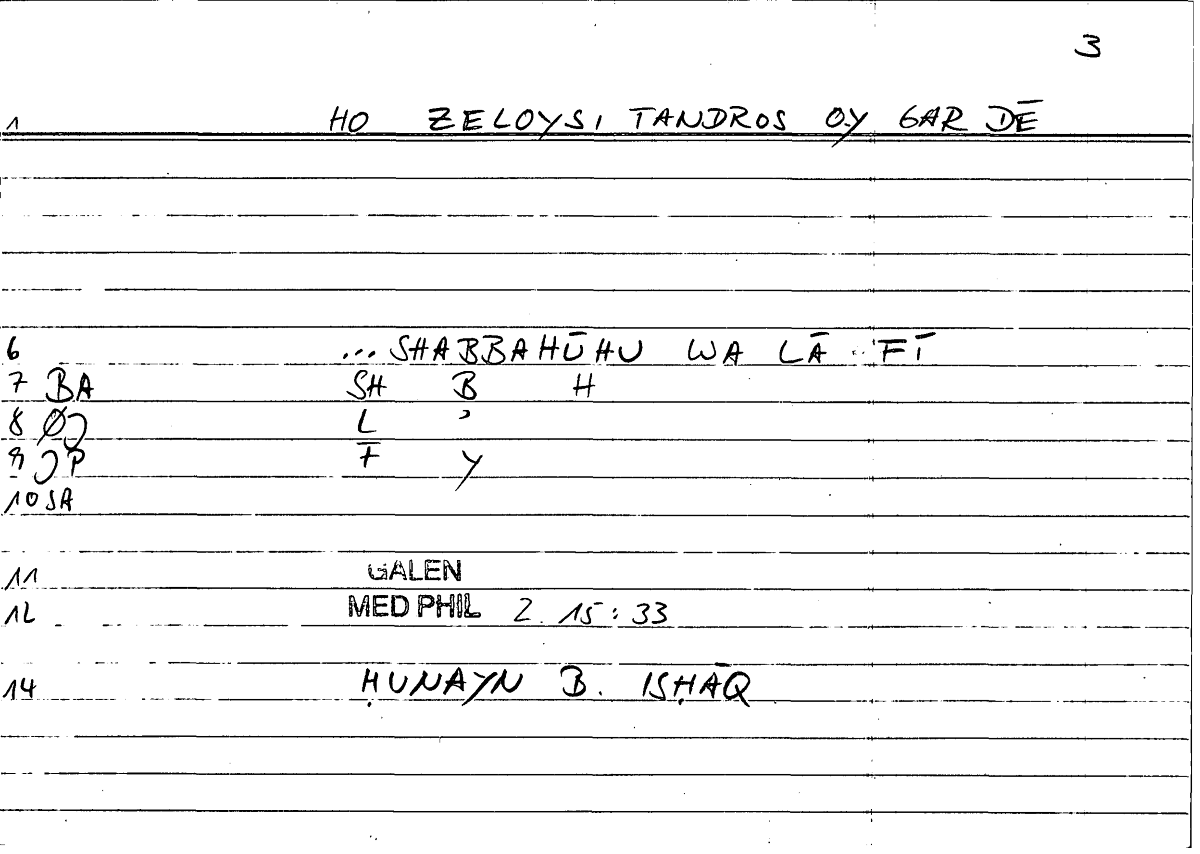 3
1 HO ZELOYSI TANDROS OY GAR DĒ
6 ... SHABBAHŪHU WA LĀ FĪ
7 BA SH B H
8 L ʾ
9 F Y
10 SA
11 GALEN
12 MED PHIL 2. 15:33
14 ḤUNAYN B. ISḤĀQ